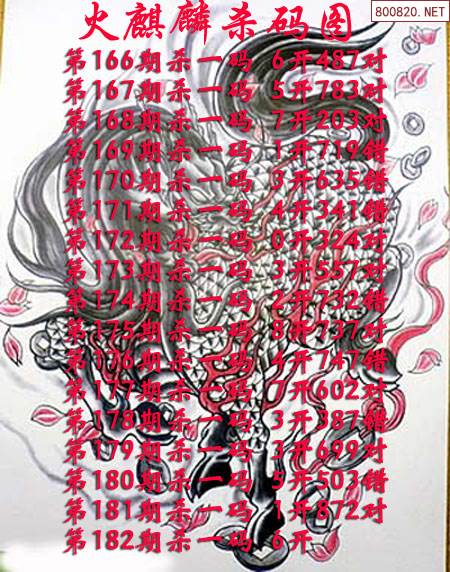 800820.NET
火麒麟杀码图
第166期杀一码 6开487对
第167期杀一码 5开783对
第168期杀一码 7开203对
第169期杀一码 1开719错
第170期杀一码 3开635错
第171期杀一码 4开341错
第172期杀一码 0开324对
第173期杀一码 3开557对
第174期杀一码 2开732错
第175期杀一码 8开737对
第176期杀一码 4开747错
第177期杀一码 7开602对
第178期杀一码 3开387错
第179期杀一码 3开699对
第180期杀一码 5开503错
第181期杀一码 1开872对
第182期杀一码 6开